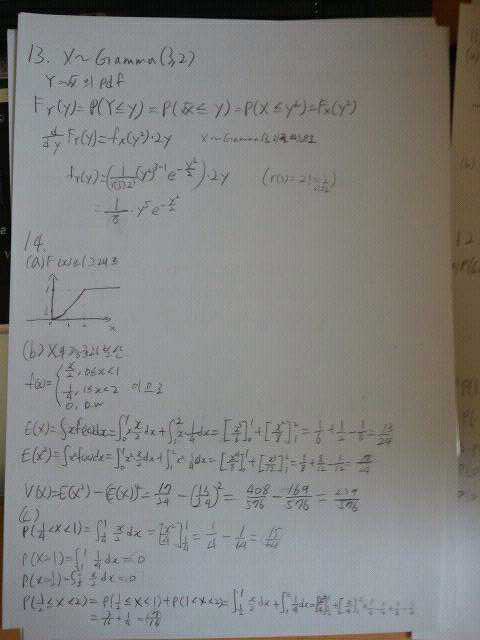 13. X~Gamma(3,2)
Y=√X의 pdf
F_Y(y)=P(Y≤y)=P(√X≤y)=P(X≤y²)=F_X(y²)
d/dy F_Y(y)=f_X(y²)·2y X~Gamma(3,2)
f_Y(y)=(1/(Γ(3)2³)(y²)^(3-1) e^(-y²/2))·2y (Γ(3)=2!
=1/8·y⁵e^(-y²/2)
14.
(a) F
x
(b) X의 평균과 분산
f(x)={x/2, 0≤x<1
1/4, 1≤x<2 이므로
0, o.w
E(X)=∫xf(x)dx=∫₀¹x·x/2 dx+∫₁²x·1/4 dx=[x³/6]₀¹+[x²/8]₁²=1/6+1/2-1/8=13/24
E(X²)=∫x²f(x)dx=∫₀¹x²·x/2 dx+∫₁²x²·1/4 dx=[x⁴/8]₀¹+[x³/12]₁²=1/8+8/12-1/12=17/24
V(X)=E(X²)-(E(X))²=17/24-(13/24)²=408/576-169/576=239/576
(c)
P(1/4<X<1)=∫_{1/4}^1 x/2 dx=[x²/4]_{1/4}^1=1/4-1/64=15/64
P(X=1)=∫₁¹ 1/4 dx=0
P(X=1/2)=∫ x/2 dx=0
P(1/2≤X<2)=P(1/2≤X<1)+P(1<X<2)=∫_{1/2}^1 x/2 dx+∫₁² 1/4 dx
=3/16+1/4=7/16